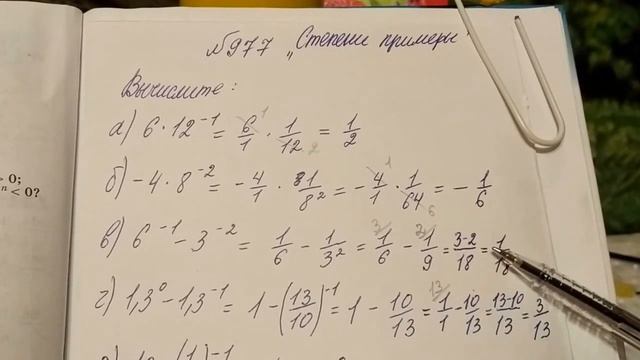 №977 „Степени примеры"
Вычислите:
> 0;
n < 0?
а) 6 · 12⁻¹ = 6/1 · 1/12 = 1/2
б) -4 · 8⁻² = -4/1 · 1/8² = -4/1 · 1/64 = -1/6
в) 6⁻¹ - 3⁻² = 1/6 - 1/3² = 1/6 - 1/9 = 3-2/18 = 1/18
г) 1,3⁰ - 1,3⁻¹ = 1 - (13/10)⁻¹ = 1 - 10/13 = 1/1 - 10/13 = 13-10/13 = 3/13